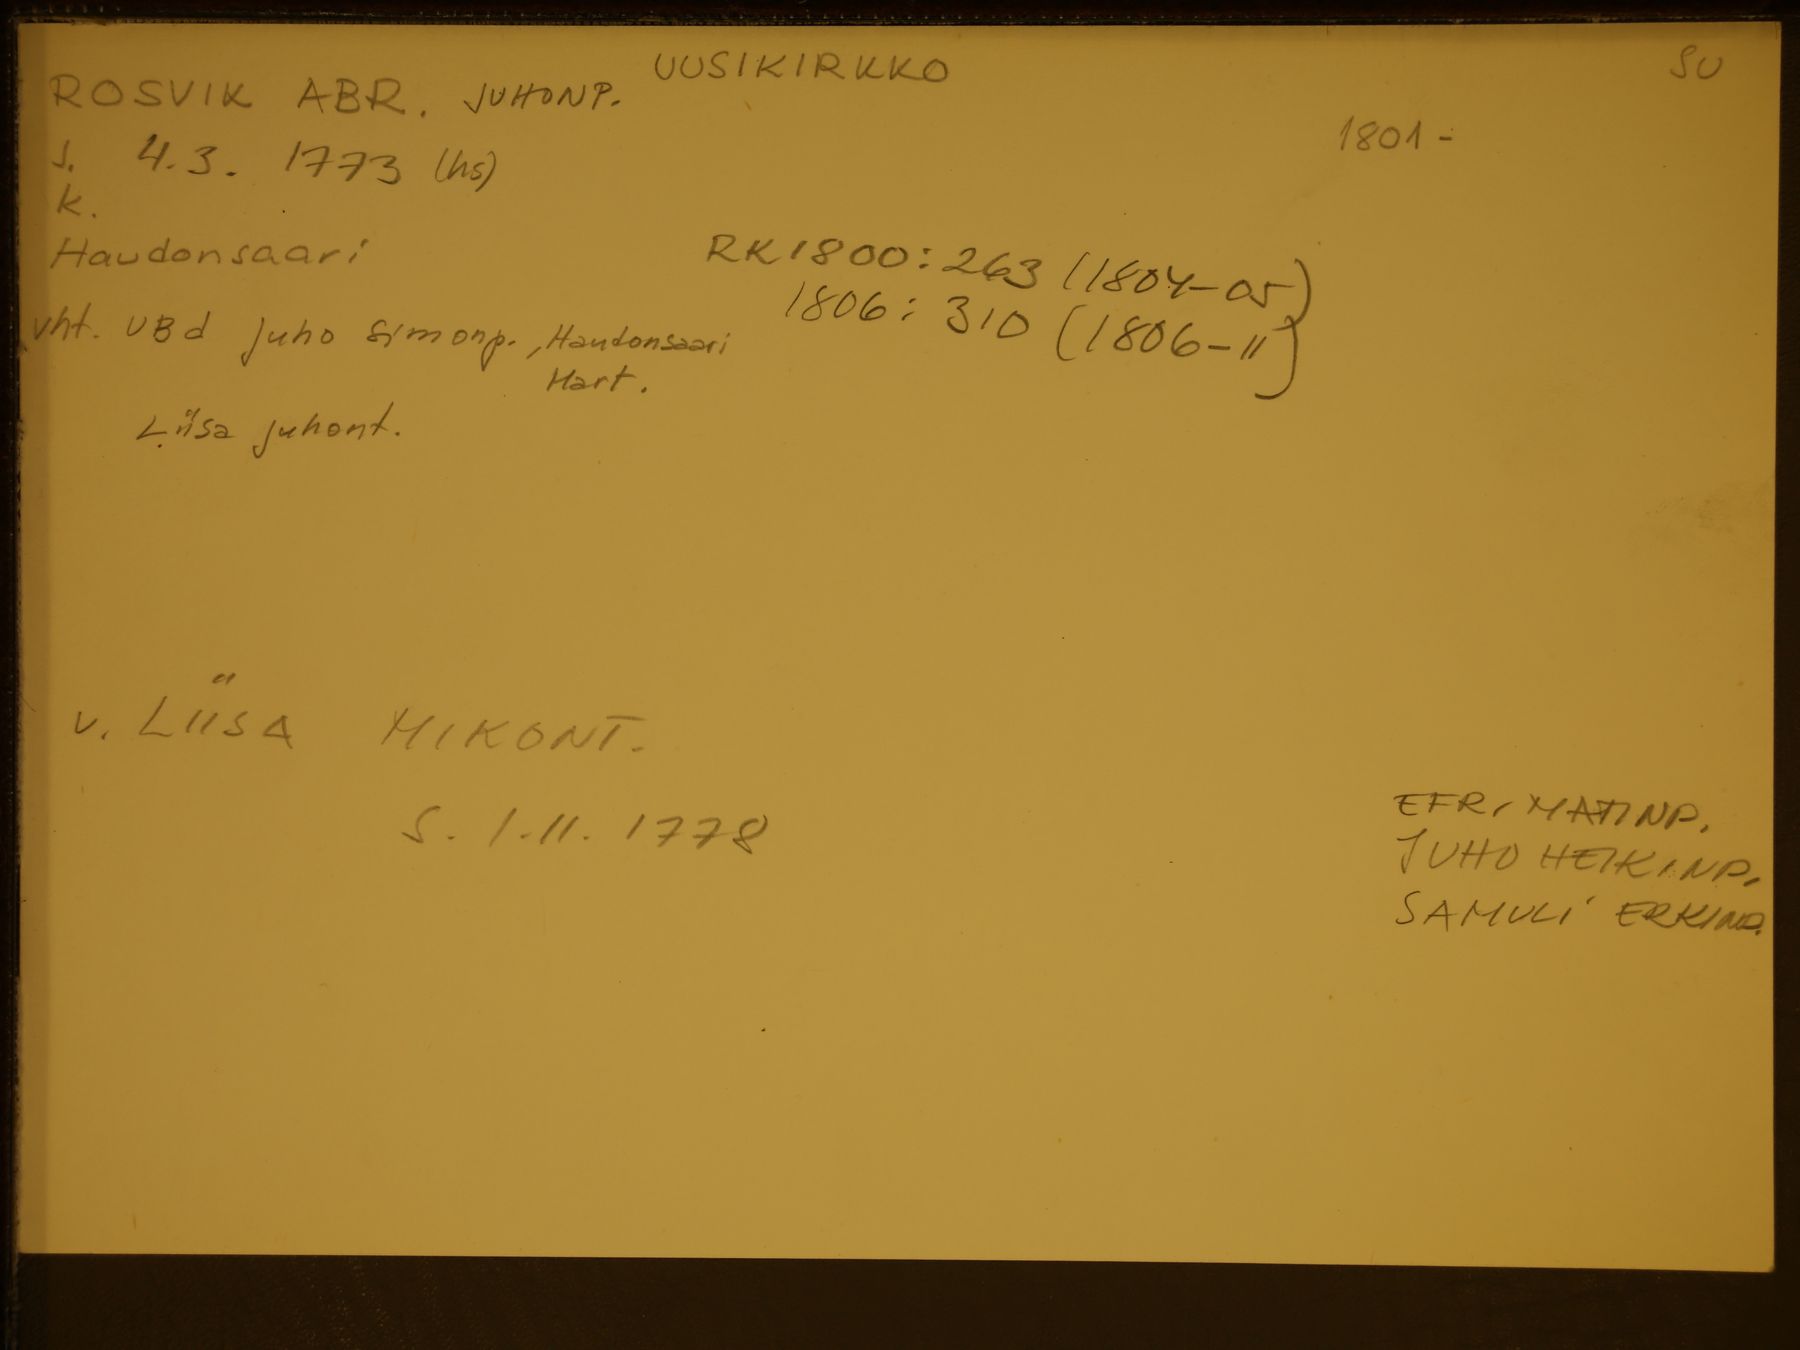 UUSIKIRKKO
SU
ROSVIK ABR. JUHONP.
1801-
s. 4.3. 1773 (hs)
k.
Haudonsaari
RK 1800: 263 (1804-05)
1806: 310 (1806-11)
vht. UBd Juho Simonp., Haudonsaari
Hart.
Liisa Juhont.
v. LIISA MIKONT.
S. 1.11. 1778
EFR. MATINP.
JUHO HEIKINP.
SAMULI ERKINP.